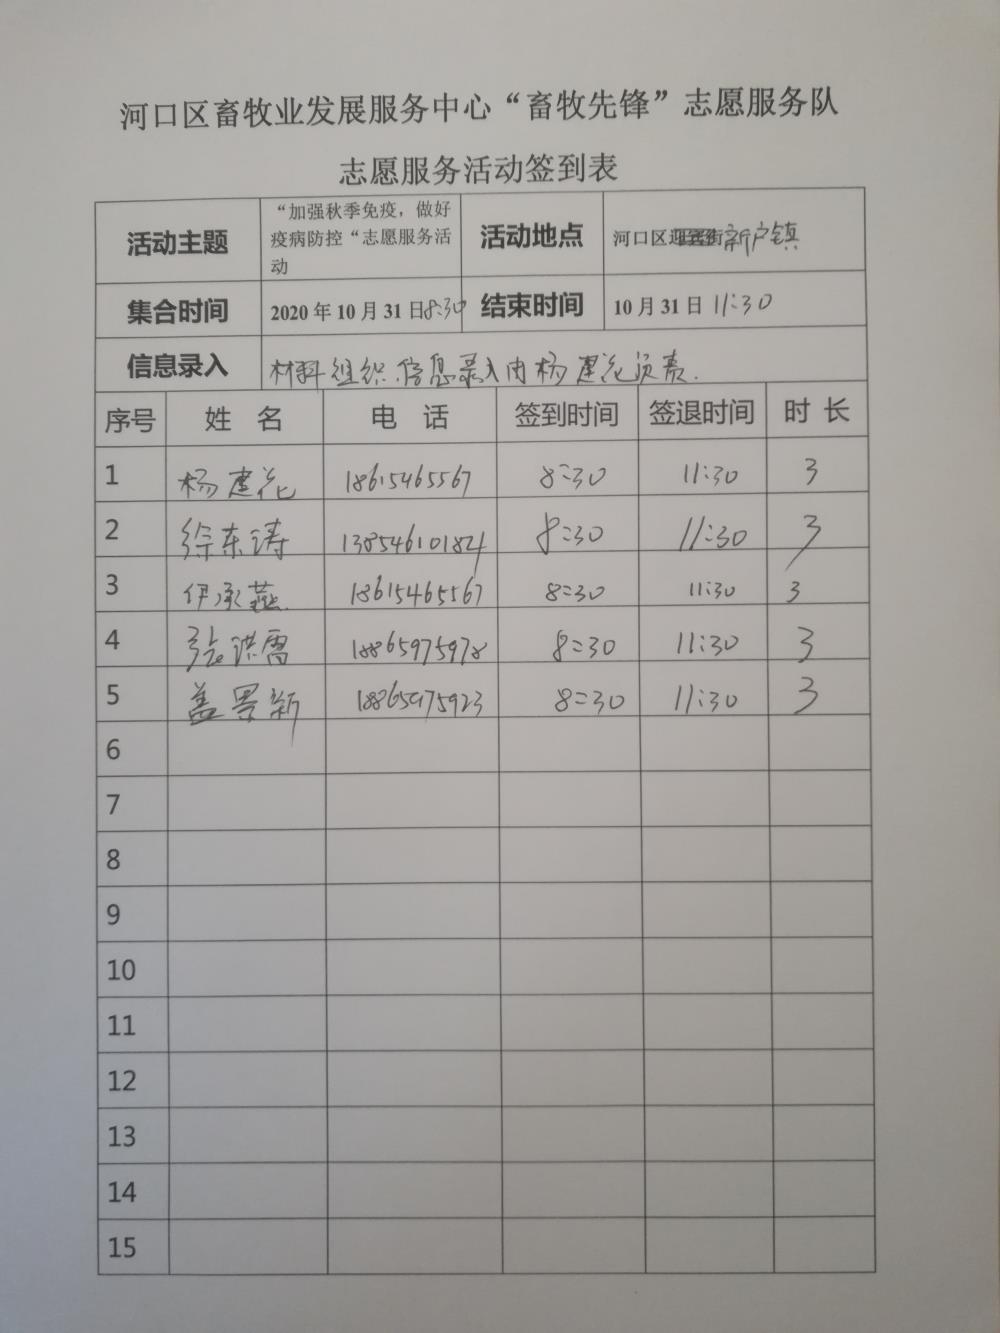 河口区畜牧业发展服务中心“畜牧先锋”志愿服务队
志愿服务活动签到表
活动主题 “加强秋季免疫，做好疫病防控“志愿服务活动 活动地点 河口区新户镇
集合时间 2020年10月31日8:30 结束时间 10月31日 11:30
信息录入 材料组织信息录入由杨建花负责.
序号 姓 名 电 话 签到时间 签退时间 时 长
1 杨建花 18615465567 8:30 11:30 3
2 徐东涛 13854610184 8:30 11:30 3
3 伊承燕 18615465567 8:30 11:30 3
4 张洪雷 18865975978 8:30 11:30 3
5 盖景新 18865975923 8:30 11:30 3
6
7
8
9
10
11
12
13
14
15